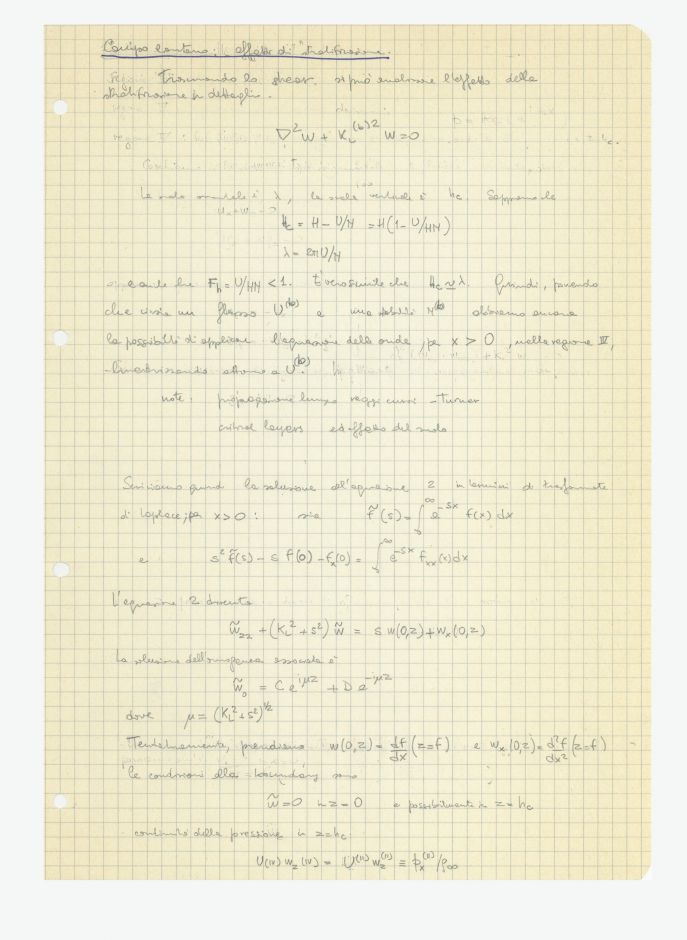 Campo lontano: effetto di stratificazione.
Trascurando lo shear. si può analizzare l'effetto della
stratificazione in dettaglio.
∇²w + K_L^(b)2 w = 0
La scala orizzontale è λ, la scala verticale è h_c. Sappiamo che
h_c = H - U/N = H(1 - U/HN)
λ = 2πU/N
F_h = U/HN < 1. È verosimile che h_c ≃ λ. Quindi, ponendo
che esista un flusso U^(b) e una stabilità N^(b) abbiamo ancora
la possibilità di applicare l'equazione delle onde, per x > 0, nella regione IV,
linearizzando attorno a U^(b).
note: propagazione lungo raggi curvi - Turner
critical layers ed effetto del suolo
Scriviamo quindi la soluzione dell'equazione 2 in termini di trasformate
di Laplace, per x > 0: sia f̃(s) = ∫₀^∞ e^-sx f(x) dx
e s² f̃(s) - s f(0) - f_x(0) = ∫₀^∞ e^-sx f_xx(x) dx
L'equazione 2 diventa
w̃_zz + (K_L² + s²) w̃ = s w(0,z) + w_x(0,z)
La soluzione dell'omogenea associata è
w̃_0 = C e^iμz + D e^-iμz
dove μ = (K_L² + s²)^1/2
prendiamo w(0,z) = df/dx (z=f) e w_x(0,z) = d²f/dx² (z=f)
le condizioni alla boundary sono
w̃ = 0 in z = 0 e possibilmente in z = h_c
continuità della pressione in z = h_c
U(IV) w_z(IV) = U^(II) w_z^(II) ≡ p_x^(II)/ρ_∞